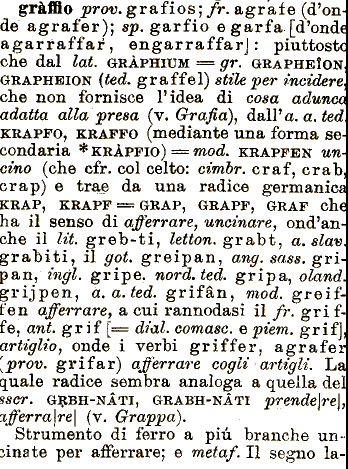 gràffio prov. grafios; fr. agrafe (d'on-
de agrafer); sp. garfio e garfa [d'onde
agarraffar, engarraffar]: piuttosto
che dal lat. GRÀPHIUM = gr. GRAPHEÎON,
GRAPHEION (ted. graffel) stile per incidere,
che non fornisce l'idea di cosa adunca
adatta alla presa (v. Grafia), dall'a. a. ted.
KRAPFO, KRAFFO (mediante una forma se-
condaria *KRÀPFIO) = mod. KRAPFEN un-
cino (che cfr. col celto: cimbr. craf, crab,
crap) e trae da una radice germanica
KRAP, KRAPF = GRAP, GRAPF, GRAF che
ha il senso di afferrare, uncinare, ond'an-
che il lit. greb-ti, letton. grabt, a. slav.
grabiti, il got. greipan, ang. sass. gri-
pan, ingl. gripe. nord. ted. gripa, oland.
grijpen, a. a. ted. grifân, mod. greif-
fen afferrare, a cui rannodasi il fr. grif-
fe, ant. grif [= dial. comasc. e piem. grif],
artiglio, onde i verbi griffer, agrafer
(prov. grifar) afferrare cogli artigli. La
quale radice sembra analoga a quella del
sscr. GṚBH-NÂTI, GRABH-NÂTI prende|re|,
afferra|re| (v. Grappa).
Strumento di ferro a piú branche un-
cinate per afferrare; e metaf. Il segno la-